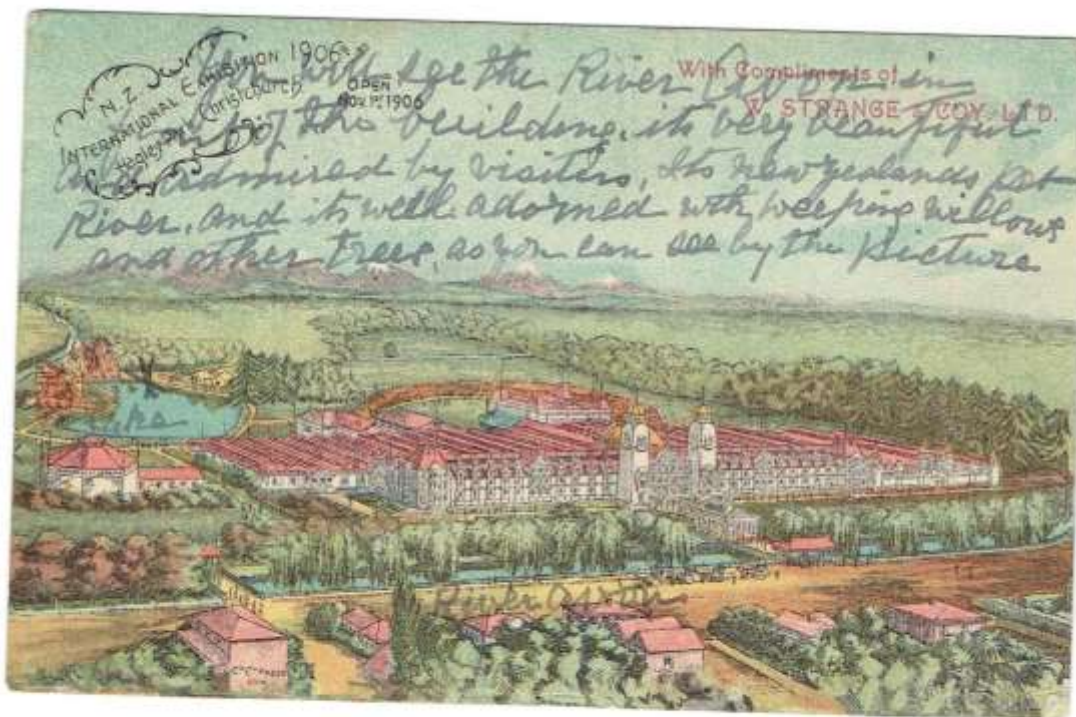 N.Z.
INTERNATIONAL EXHIBITION 1906
Hagley Park Christchurch
OPEN
NOV. 1st, 1906
With Compliments of
W. STRANGE & COY. LTD.
You will see the River Avon in
front of the building, its very beautiful
admired by visitors, Its newzealands pet
River, and its well adorned with weeping willows
and other trees, as you can see by the picture
Lake
River avon